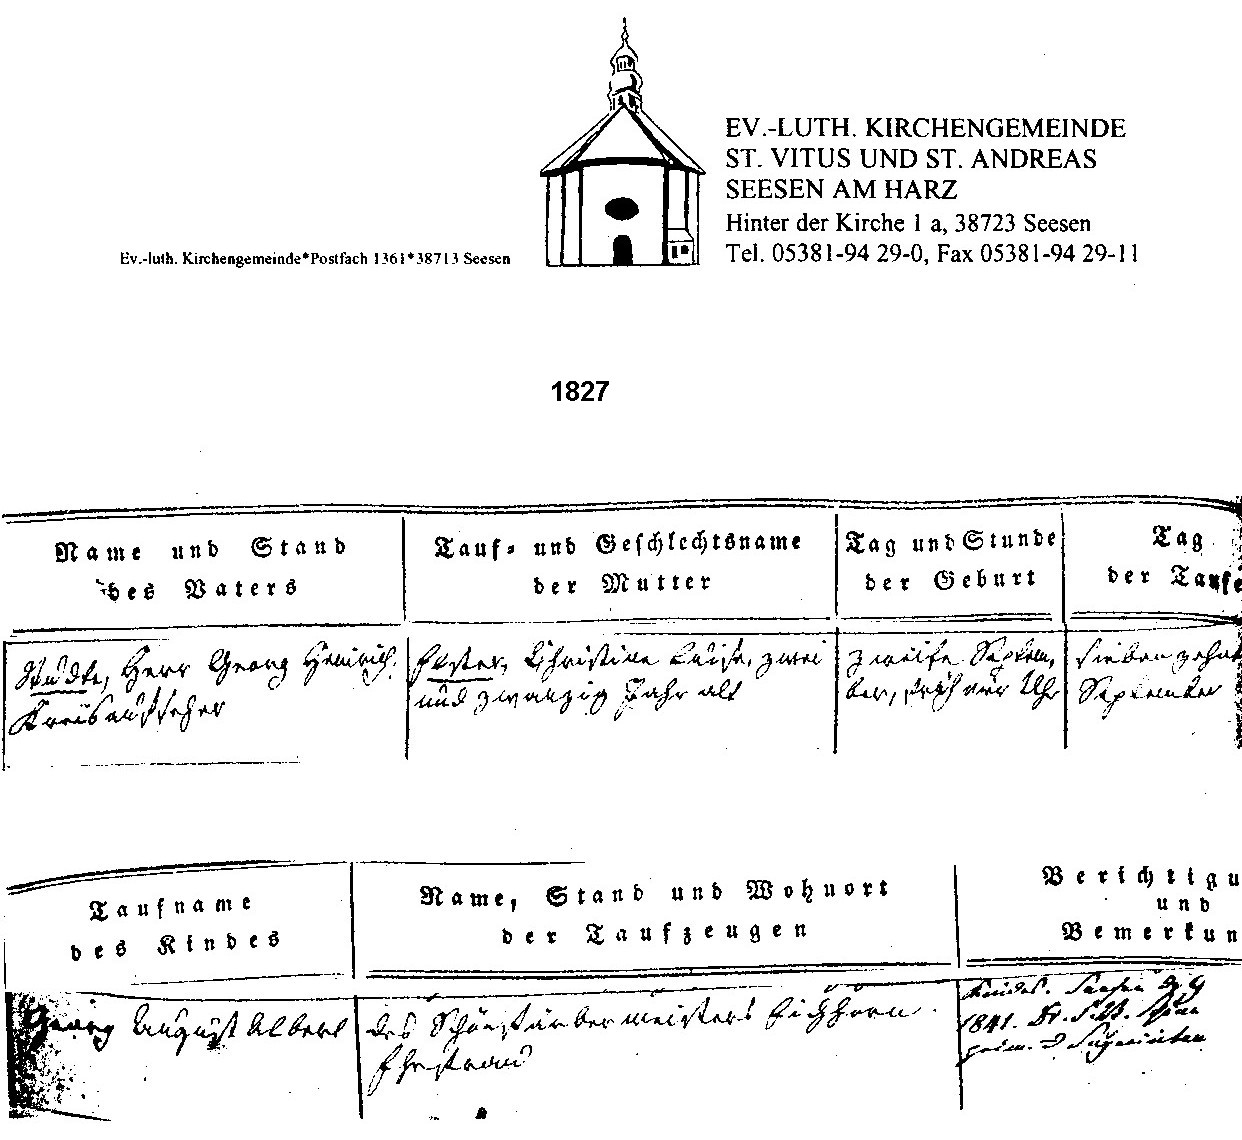 EV.-LUTH. KIRCHENGEMEINDE
ST. VITUS UND ST. ANDREAS
SEESEN AM HARZ
Hinter der Kirche 1 a, 38723 Seesen
Ev.-luth. Kirchengemeinde*Postfach 1361*38713 Seesen
Tel. 05381-94 29-0, Fax 05381-94 29-11
1827
Name und Stand
des Vaters
Tauf- und Geschlechtsname
der Mutter
Tag und Stunde
der Geburt
Tag
der Taufe
Herr Georg Heinrich,
Kreisaufseher
Christine Luise, zwei
und zwanzig Jahr alt
zwölfte Septem,
ber, früh vier Uhr
siebenzehnt
September
Taufname
des Kindes
Name, Stand und Wohnort
der Taufzeugen
Berichtigu
und
Bemerkun
Georg August Albert
des Schönfärbermeisters Eichhorn
Ehefrau
Seesen
1841.